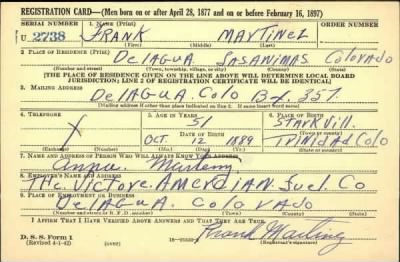 REGISTRATION CARD—(Men born on or after April 28, 1877 and on or before February 16, 1897)
SERIAL NUMBER 1. NAME (Print) ORDER NUMBER
U 2738 FRANK MARTINEZ
(First) (Middle) (Last)
2 PLACE OF RESIDENCE (Print)
DelAGUA LASANIMAS Colorado
(Number and street) (Town, township, village, or city) (County) (State)
[THE PLACE OF RESIDENCE GIVEN ON THE LINE ABOVE WILL DETERMINE LOCAL BOARD
JURISDICTION; LINE 2 OF REGISTRATION CERTIFICATE WILL BE IDENTICAL]
3. MAILING ADDRESS
DelAGUA. Colo Box 357.
[Mailing address if other than place indicated on line 2. If same insert word same]
4. TELEPHONE 5. AGE IN YEARS 6. PLACE OF BIRTH
X 51 Starkvill.
DATE OF BIRTH
OCT. 12 1889 TRINIDAD Colo
(Exchange) (Number) (Mo.) (Day) (Yr.) (State or country)
7. NAME AND ADDRESS OF PERSON WHO WILL ALWAYS KNOW YOUR ADDRESS
Anna
8. EMPLOYER'S NAME AND ADDRESS
The Victore. AMERDIAN. Fuel Co
9. PLACE OF EMPLOYMENT OR BUSINESS
DelAGUA. Colorado
(Number and street or R. F. D. number) (Town) (County) (State)
I AFFIRM THAT I HAVE VERIFIED ABOVE ANSWERS AND THAT THEY ARE TRUE.
D. S. S. Form 1
(Revised 4-1-42) (over) Frank
(Registrant's signature)